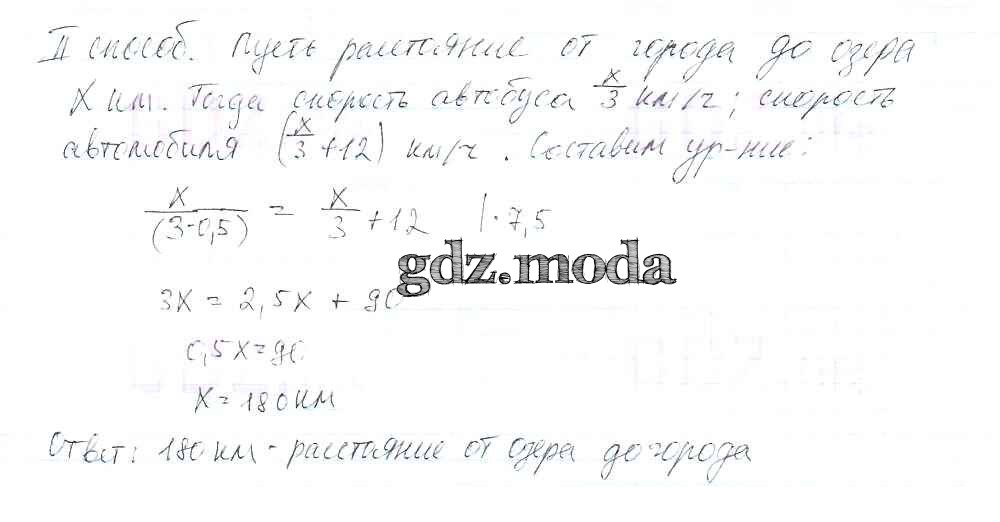 II способ. Пусть расстояние от города до озера
X км. Тогда скорость автобуса x/3 км/ч; скорость
автомобиля (x/3 +12) км/ч. Составим ур-ние:
x/(3-0,5) = x/3 +12 |·7,5
gdz.moda
3x = 2,5x + 90
0,5x=90
x=180км
Ответ: 180км - расстояние от озера до города